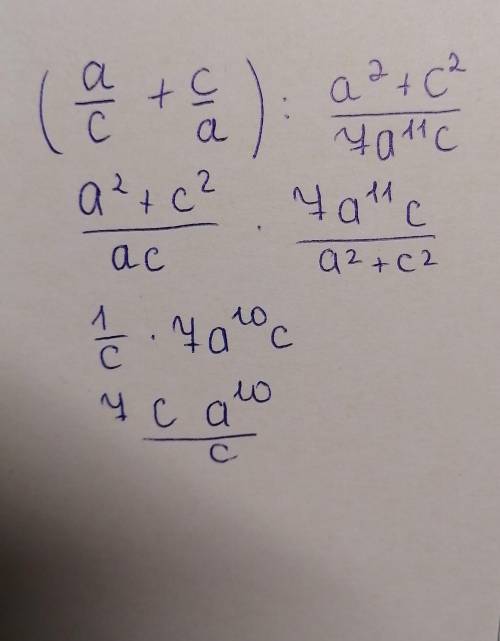 (a/c + c/a) : (a² + c²)/(7a¹¹c)
(a² + c²)/(ac) · (7a¹¹c)/(a² + c²)
1/c · 7a¹⁰c
7 c a¹⁰/c